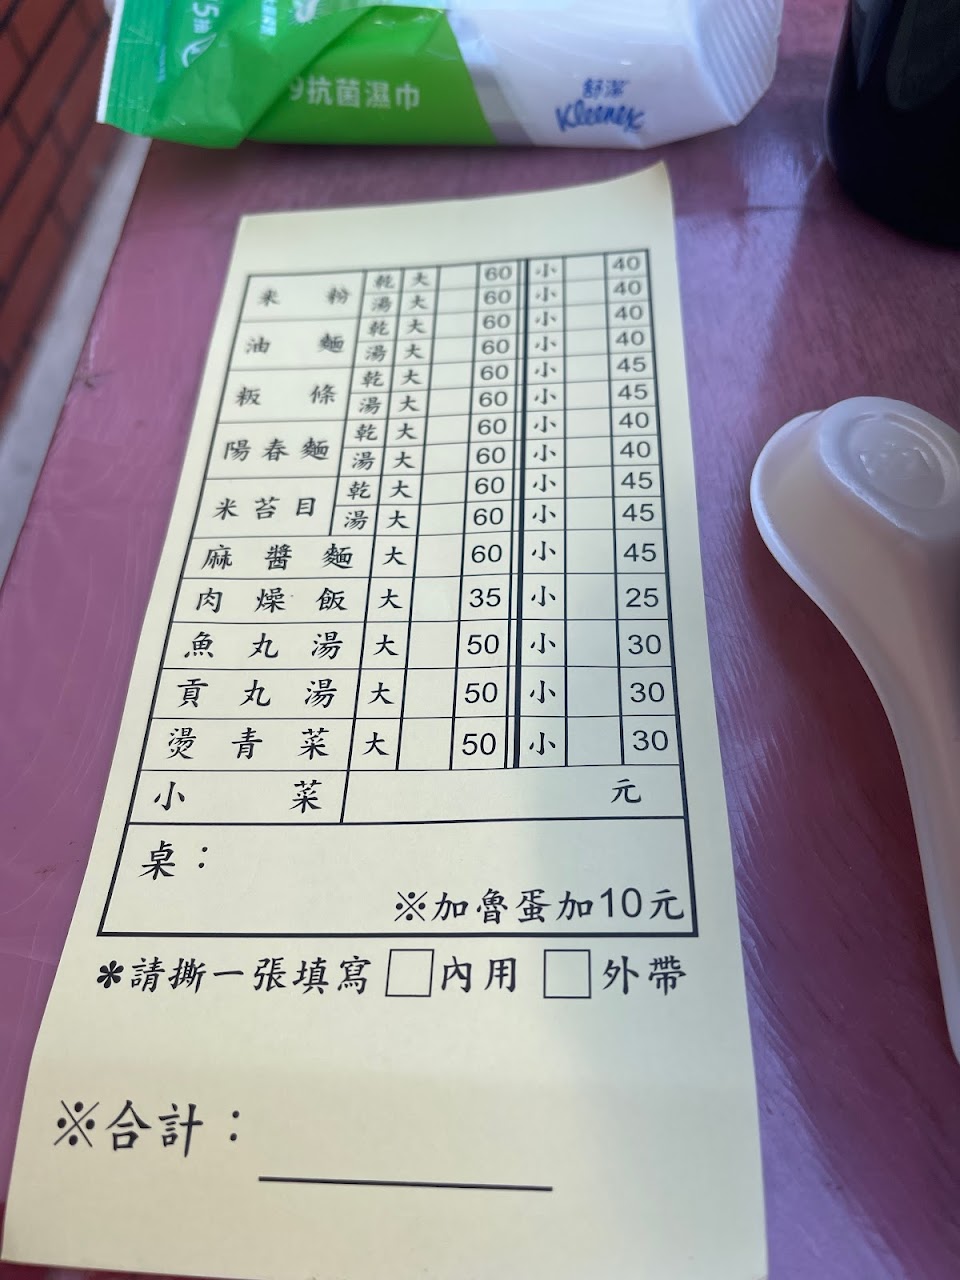 5抽
9抗菌濕巾
舒潔
Kleenex
米粉 乾 大 60 小 40
湯 大 60 小 40
油麵 乾 大 60 小 40
湯 大 60 小 40
粄條 乾 大 60 小 45
湯 大 60 小 45
陽春麵 乾 大 60 小 40
湯 大 60 小 40
米苔目 乾 大 60 小 45
湯 大 60 小 45
麻醬麵 大 60 小 45
肉燥飯 大 35 小 25
魚丸湯 大 50 小 30
貢丸湯 大 50 小 30
燙青菜 大 50 小 30
小菜 元
桌：
※加魯蛋加10元
*請撕一張填寫 內用 外帶
※合計：